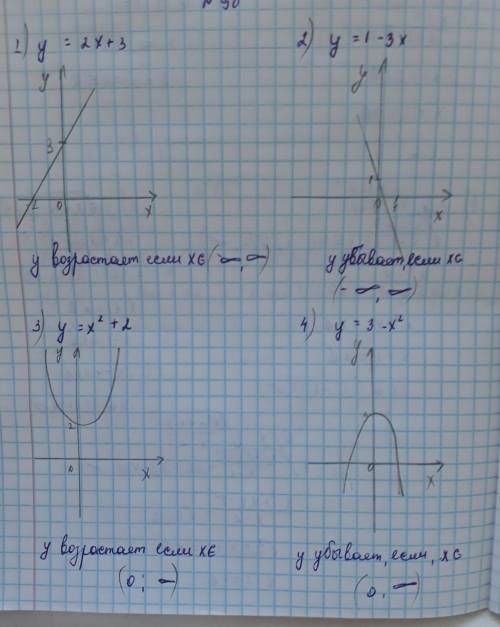 № 90
1) y = 2x+3
y
3
0
x
y возрастает если x∈ (-∞, ∞)
2) y = 1 - 3x
y
1
0
1
x
y убывает, если x∈
(-∞, ∞)
3) y = x² + 2
y
2
0
x
y возрастает если x∈
(0; ∞)
4) y = 3 - x²
y
0
x
y убывает, если, x∈
(0, ∞)